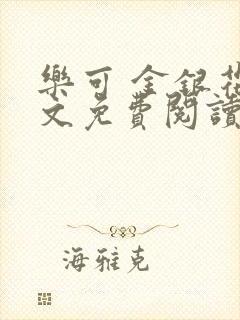 樂可 金銀花
文免費閱讀
海雅克